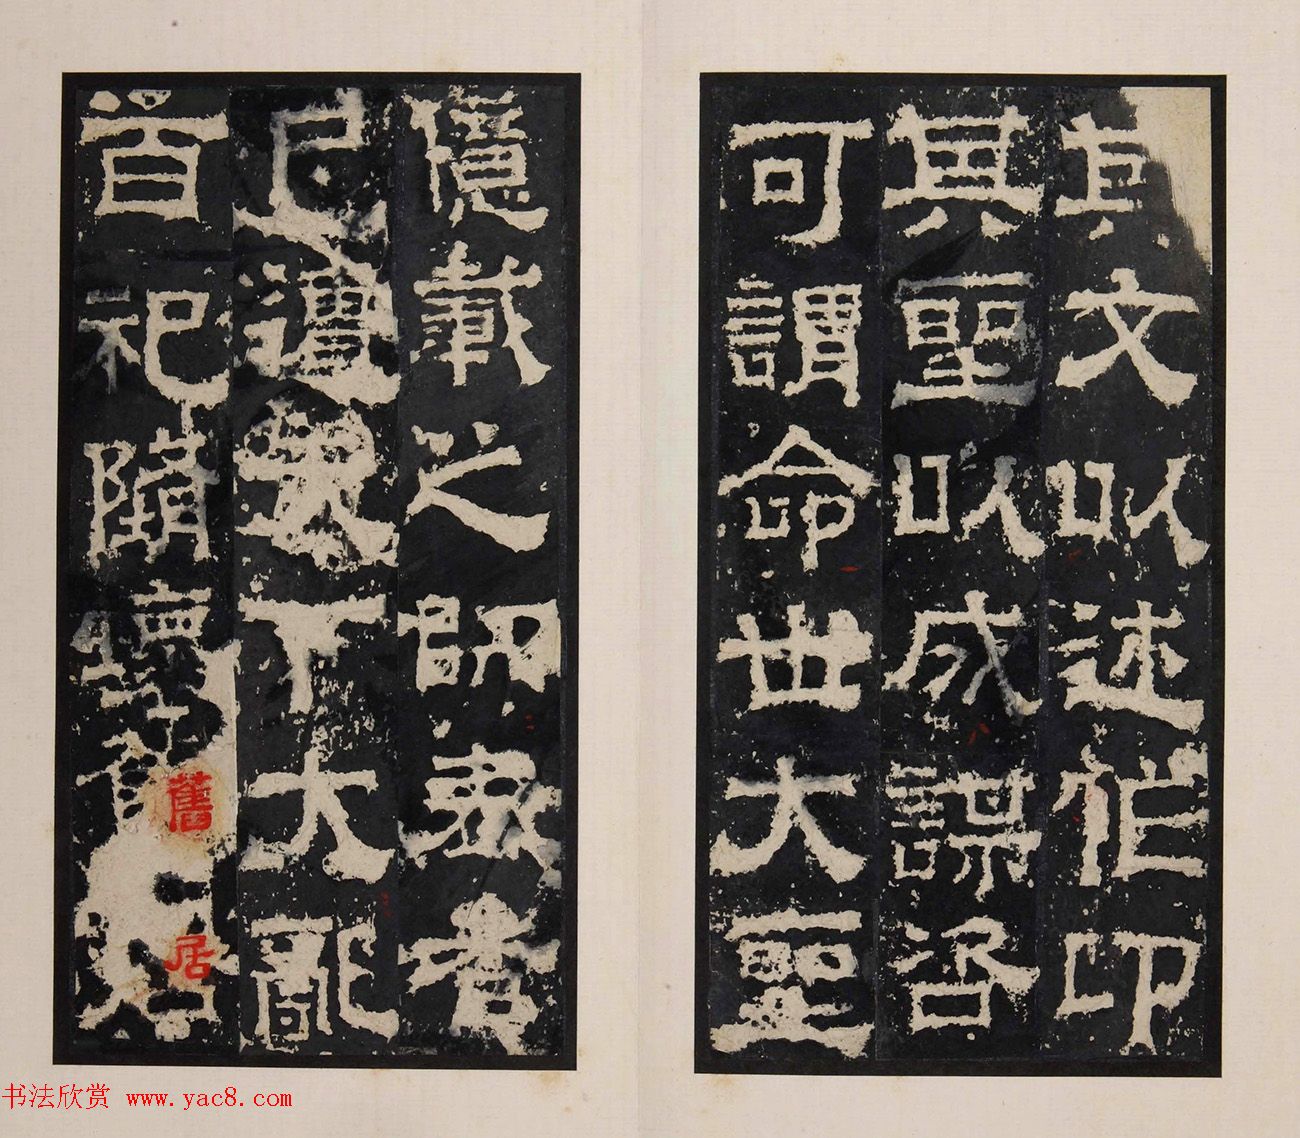 其文以述作卬
其聖以成謀咨
可謂命世大聖
億載之師表者
已遭天下大亂
百祀墮壞舊居
舊
居
书法欣赏 www.yac8.com